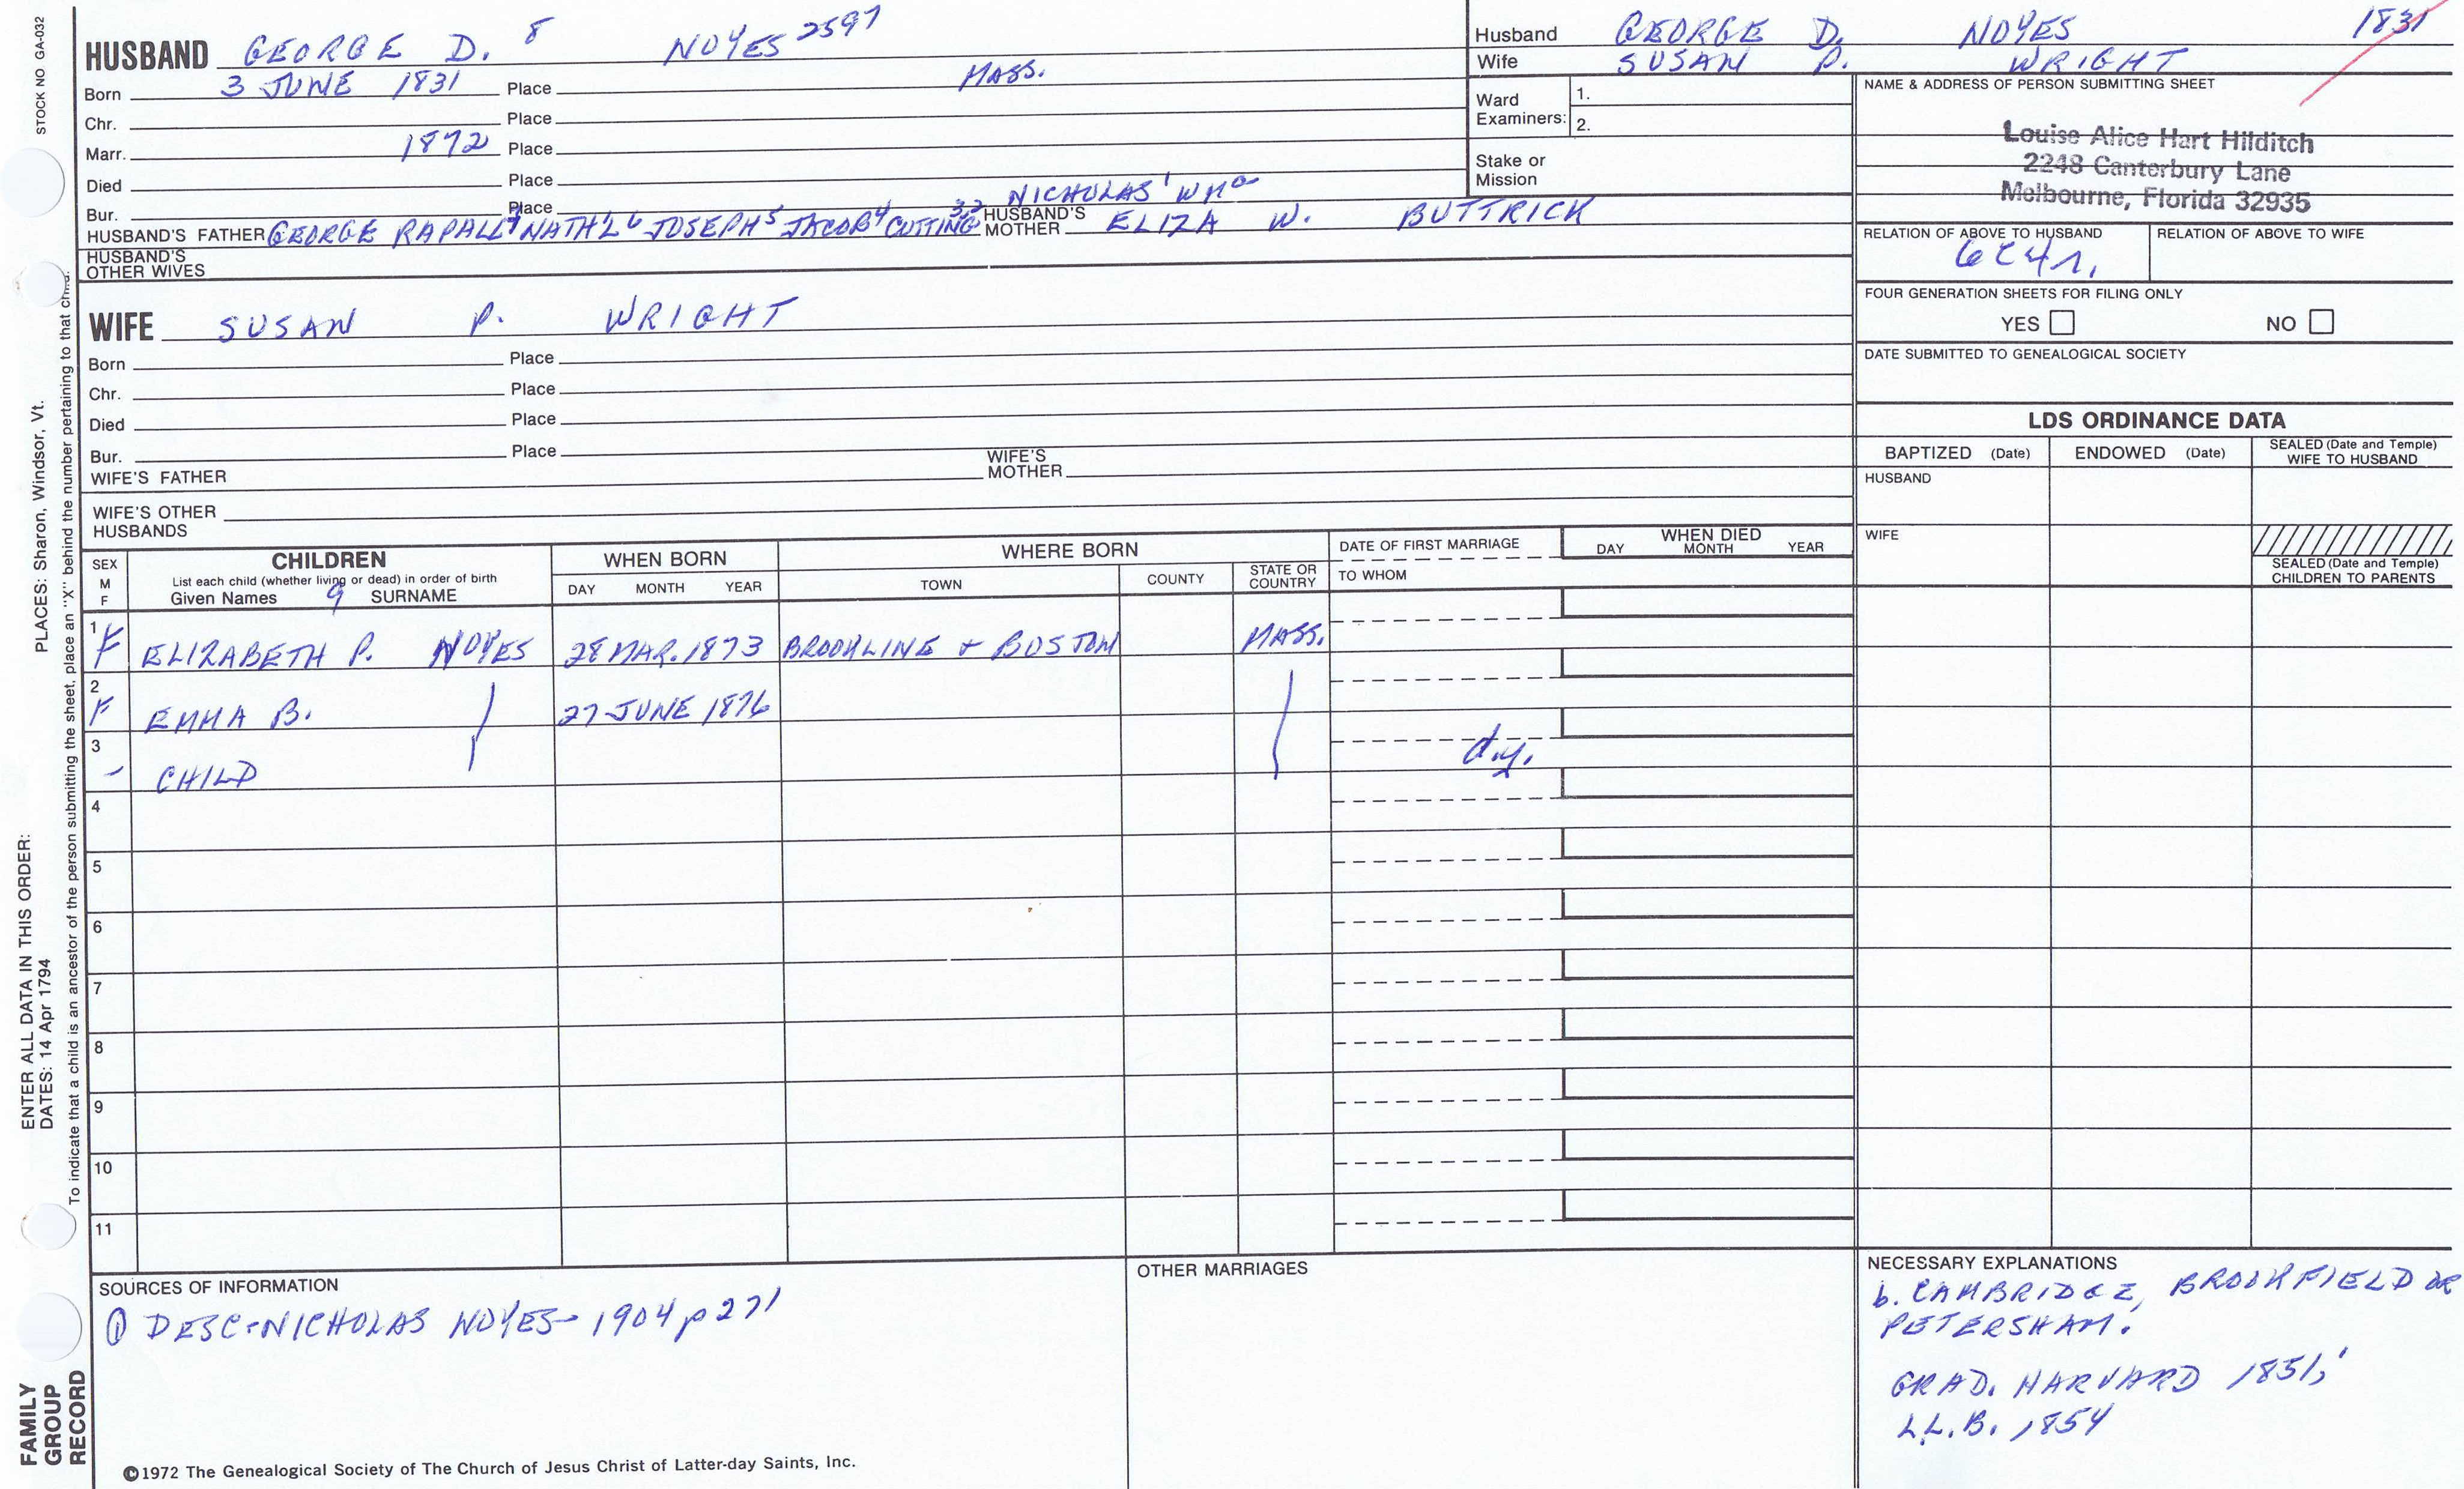 STOCK NO GA-032
HUSBAND GEORGE D. 8 NOYES 2597
Born 3 JUNE 1831 Place MASS.
Chr. Place
Marr. 1872 Place
Died Place
Bur. Place NICHOLAS 1 WM 2
HUSBAND'S FATHER GEORGE RAPALL 7 NATH'L 6 JOSEPH 5 JACOB 4 CUTTING 3,2 HUSBAND'S MOTHER ELIZA W. BUTTRICK
HUSBAND'S OTHER WIVES
WIFE SUSAN P. WRIGHT
Born Place
Chr. Place
Died Place
Bur. Place
WIFE'S FATHER WIFE'S MOTHER
WIFE'S OTHER HUSBANDS
Husband GEORGE D. NOYES 1831
Wife SUSAN P. WRIGHT
Ward Examiners: 1.
2.
Stake or Mission
NAME & ADDRESS OF PERSON SUBMITTING SHEET
Louise Alice Hart Hilditch
2248 Canterbury Lane
Melbourne, Florida 32935
RELATION OF ABOVE TO HUSBAND RELATION OF ABOVE TO WIFE
6C4r.
FOUR GENERATION SHEETS FOR FILING ONLY
YES NO
DATE SUBMITTED TO GENEALOGICAL SOCIETY
LDS ORDINANCE DATA
BAPTIZED (Date) ENDOWED (Date) SEALED (Date and Temple) WIFE TO HUSBAND
HUSBAND
WIFE
SEALED (Date and Temple) CHILDREN TO PARENTS
SEX M F
CHILDREN
List each child (whether living or dead) in order of birth
Given Names 9 SURNAME
WHEN BORN
DAY MONTH YEAR
WHERE BORN
TOWN COUNTY STATE OR COUNTRY
DATE OF FIRST MARRIAGE
TO WHOM
WHEN DIED
DAY MONTH YEAR
1 F ELIZABETH P. NOYES 28 MAR. 1873 BROOKLINE + BOSTON MASS.
2 F EMMA B. 27 JUNE 1876
3 - CHILD d.y.
4
5
6
7
8
9
10
11
SOURCES OF INFORMATION
① DESC-NICHOLAS NOYES-1904 p 271
OTHER MARRIAGES
NECESSARY EXPLANATIONS
b. CAMBRIDGE, BROOKFIELD OR
PETERSHAM.
GRAD. HARVARD 1851;
LL.B. 1854
©1972 The Genealogical Society of The Church of Jesus Christ of Latter-day Saints, Inc.
FAMILY
GROUP
RECORD
ENTER ALL DATA IN THIS ORDER:
DATES: 14 Apr 1794 PLACES: Sharon, Windsor, Vt.
To indicate that a child is an ancestor of the person submitting the sheet, place an "X" behind the number pertaining to that child.